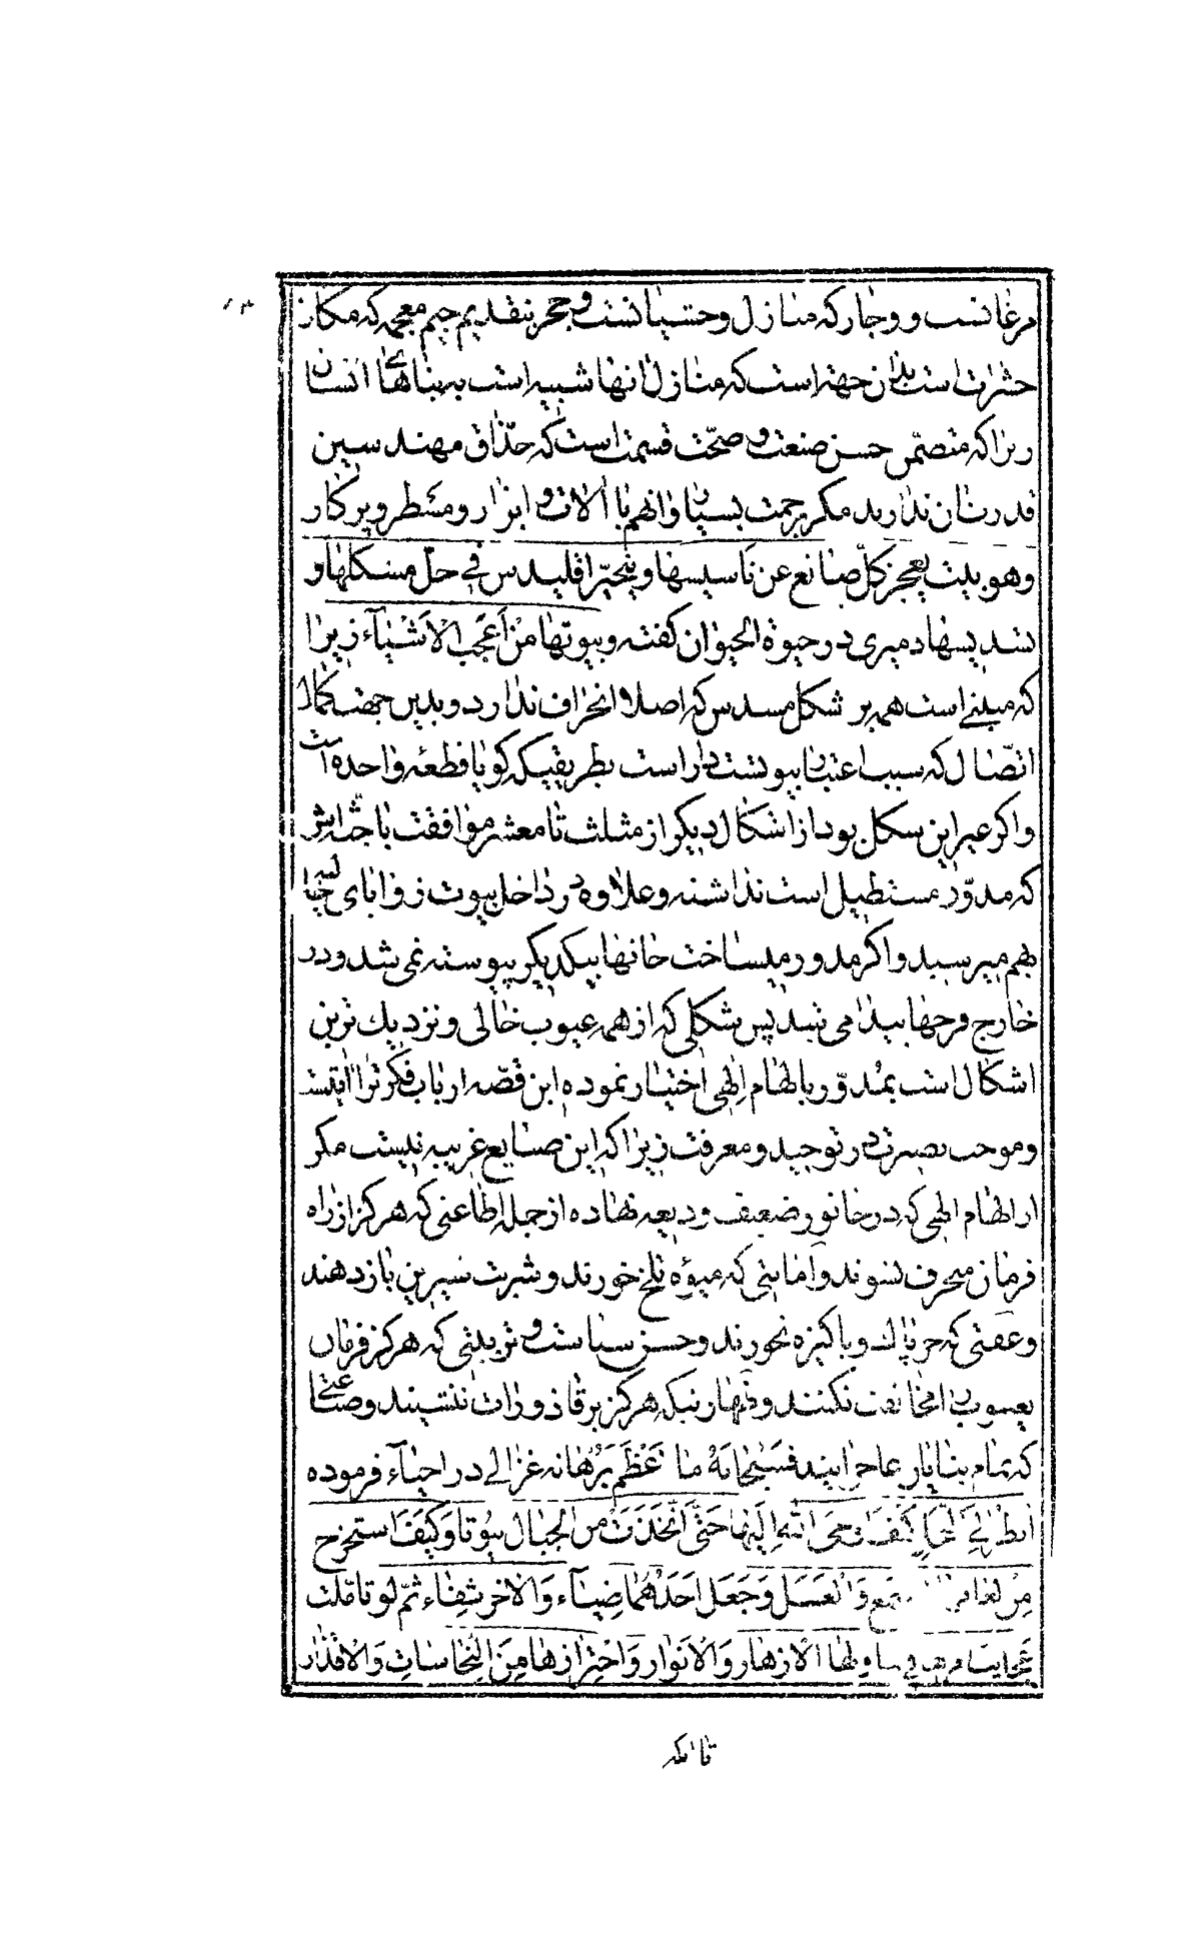 مرغانست و وجار که منازل وحشیانست و جحر بتقدیم جیم معجمه که مکان
حشرات است بدان جهة است که منازل انها شبیه است به بناهای انسان
زیرا که متضمّن حسن صنعت و صحّت قسمت است که حذّاق مهندسین
قدرت ان ندارند مکر بزحمت بسیار و انهم با الات و ابزار و مسطر و پرکار
وهو بیت یعجز کلّ صانع عن تاسیسها و یتحیّر اقلیدس فی حلّ مشکلها و
تسدیسها دمیری در حیوة الحیوان کفته و بیوتها من اَعجب الاَشیآء زیرا
که مبنی است همه بر شکل مسدس که اصلا انحراف ندارد و بدین جهت کمال
اتّصال که سبب اعتبار پیوستست داراست بطریقیکه کویا قطعۀ واحده است
و اکر غیر این شکل بود از اشکال دیکر از مثلث تا معشر موافقت با جثه اش
که مدوّر مستطیل است نداشته و علاوه در داخل بیوت زوایای
بهم میرسید و اکر مدور میساخت خانها بیکدیکر پیوسته نمی شد و در
خارج فرجها پیدا می شد پس شکلی که از همه عیوب خالی و نزدیك ترین
اشکال است بمُدوّر بالهام اِلهی اختیار نموده این قصّه ارباب فکرت را ایتست
و موجب بصیرت در توحید و معرفت زیرا که این صنایع غریبه نیست مکر
از الهام الهی که در جانور ضعیف ودیعه نهاده از جمله اطاعتی که هرکز از راه
فرمان منحرف نشوند و امانتی که میوۀ تلخ خورند و شربت شیرین باز دهند
و عفتی که جز پاك و پاکیزه نخورند و حسن سیاست و تربیتی که هرکز فرمان
یعسوب را مخالفت نکنند و طهارتیکه هرکز بر قاذورات ننشینند و صناعتی
که تمام بنایان عاجز ایند فسُبحانَهُ ما اَعْظَم بَرُهانه غزالی در احیآء فرموده
اُنظر اِلی النحل کَیف اَوحیَ الله اِلَیها حَتّی اتّخذَتَ من الجبال بیُوتا وَ کیَفَ استخرج
مِنْ لعابها الشمع وَ العَسَل وَ جَعَل اَحَدهُما ضِیآء وَ الاخر شِفاء ثمّ لو تاملت
عَجایب امرها فی تناولها الاَزهار وَ الاَنوار وَ احْتِرازها مِنَ النّجاسات وَ الاَقذار
تا انکه